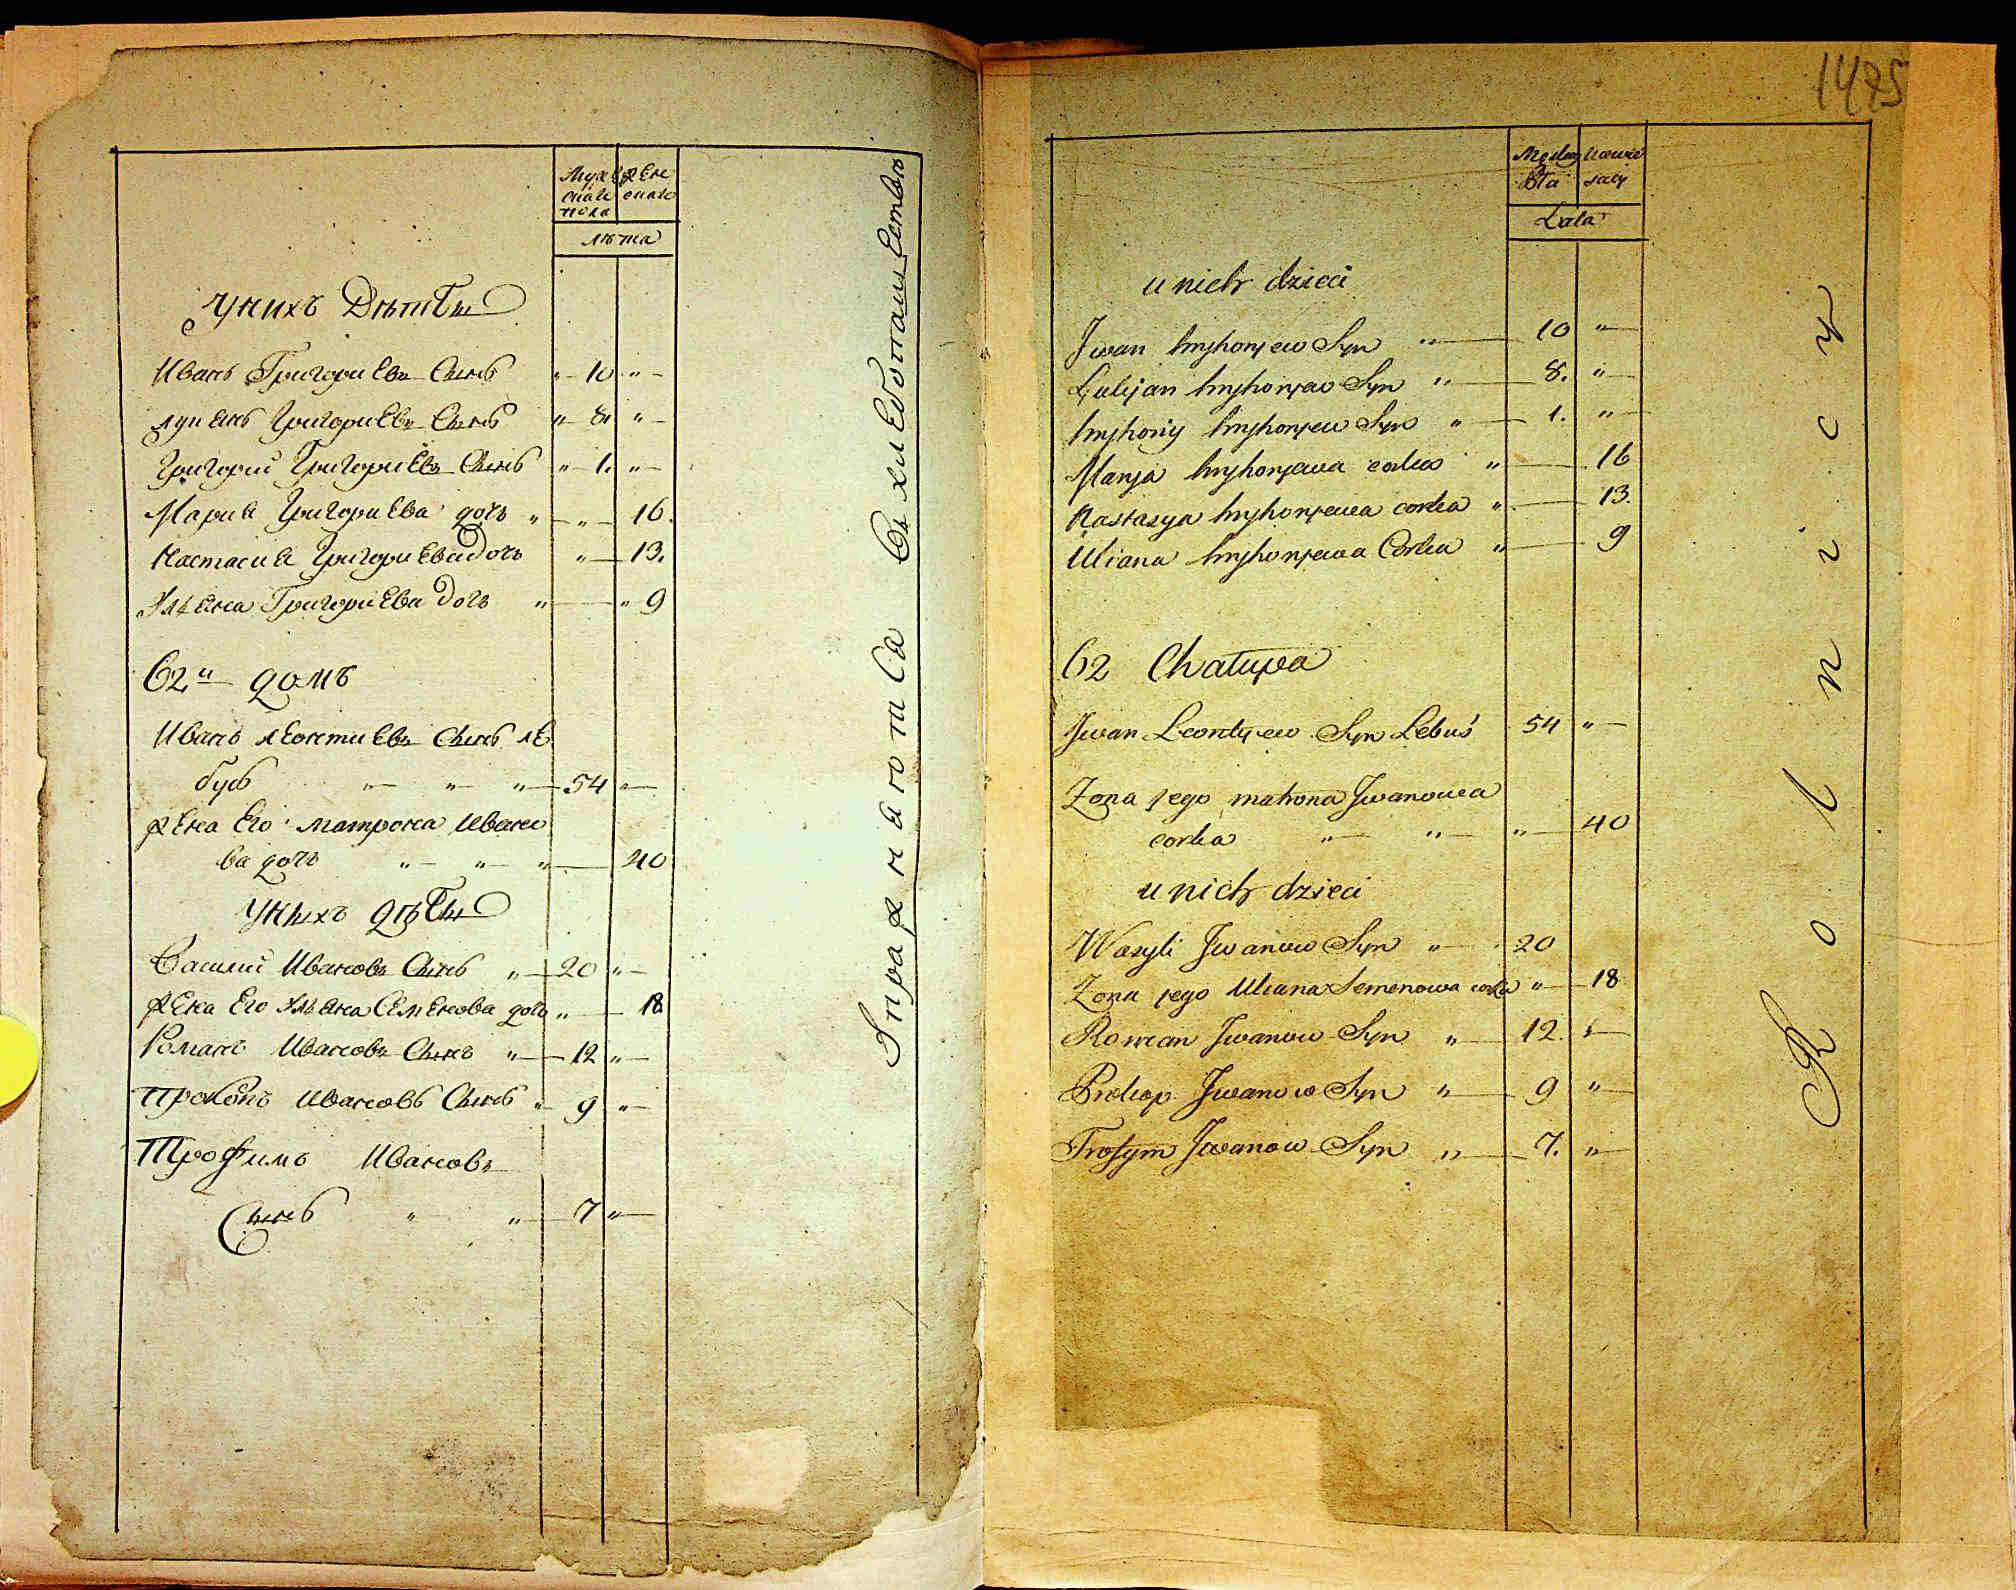 Мужеска
женс
скаго
пола
лѣта
У нихъ Дѣти
Иванъ Григориевъ Сынъ „ 10 „
лукянъ Григориевъ Сынъ „ 8 „
Григорий Григориевъ Сынъ „ 1. „
Мария Григориева дочь „ „ 16.
Настасия Григориева Дочь „ 13.
Ульяна Григориева Дочь „ „ 9
62й домъ
Иванъ леонтиевъ Сынъ ле
бусъ „ „ „ 54 „
жена Его матрона Ивано
ва дочь „ „ „ 40
У нихъ дѣти
Василий Ивановъ Сынъ „ 20 „
жена Его Ульяна Семенова дочь „ 18
Романъ Ивановъ Сынъ „ 12 „
Прокопъ Ивановъ Сынъ „ 9 „
Трофимъ Ивановъ
Сынъ „ „ 7 „
1475
Lata
u nich dzieci
Jwan hryhoryew Syn „ 10 „
Łukjan hryhoryew Syn „ 8. „
hryhory hryhoryew Syn „ 1. „
Marya hryhoryewa corka „ 16
Nastasya hryhoryewa corka „ 13.
Uliana hryhoryewa Corka „ 9
62 Chałupa
Jwan Leontyew Syn Lebuś 54 „
Zona jego matrona Jwanowa
corka „ „ „ 40
u nich dzieci
Wasyli Jwanow Syn „ 20
Zona jego Uliana Semenowa corka „ 18
Roman Jwanow Syn „ 12. „
Prokop Jwanow Syn „ 9 „
Trofym Jwanow Syn „ 7. „